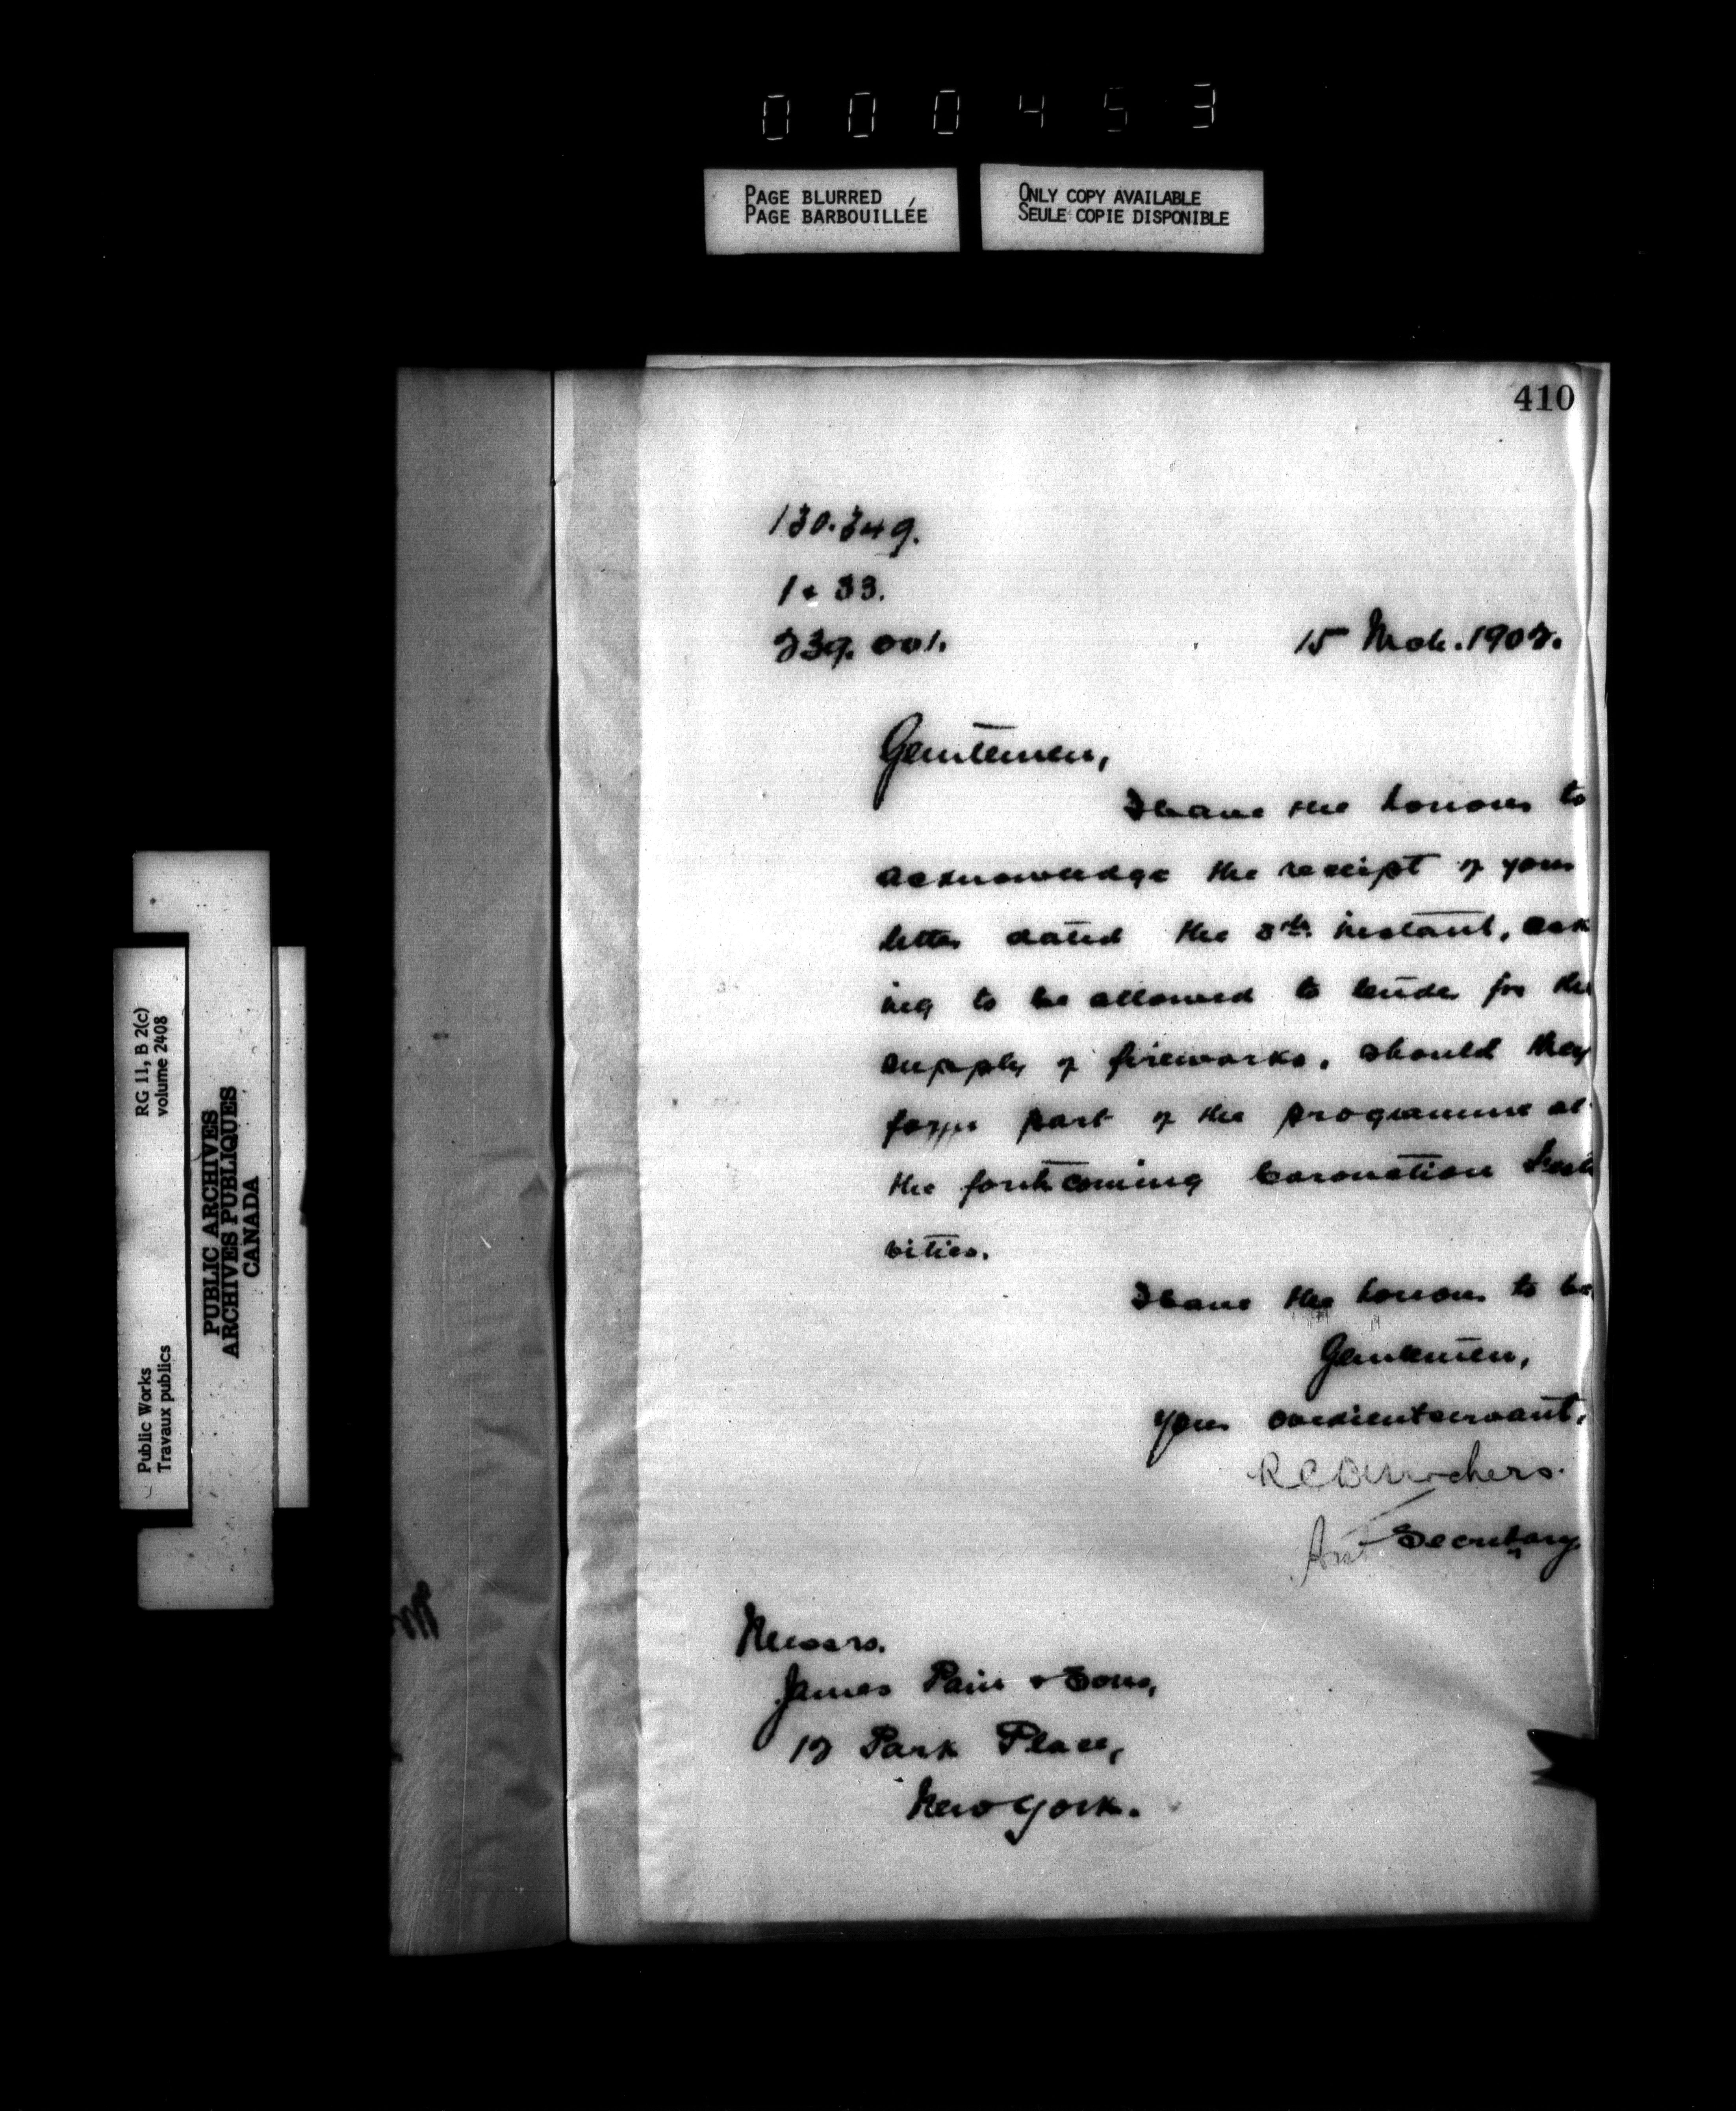 000453
PAGE BLURRED
PAGE BARBOUILLÉE
ONLY COPY AVAILABLE
SEULE COPIE DISPONIBLE
410
130.349.
1 & 33.
239.001.
15 Mch. 1902.
Gentlemen,
I have the honour to
acknowledge the receipt of your
letter dated the instant, ask
ing to be allowed to tender for the
supply of fireworks, should they
form part of the programme at
the forthcoming Coronation festi
vities.
I have the honour to be
Gentlemen,
Your obedient servant,
R C Desrochers.
Asst Secretary
Messrs.
James Pain & Sons,
12 Park Place,
New York.
RG 11, B 2(c)
volume 2408
Public Works
Travaux publics
PUBLIC ARCHIVES
ARCHIVES PUBLIQUES
CANADA